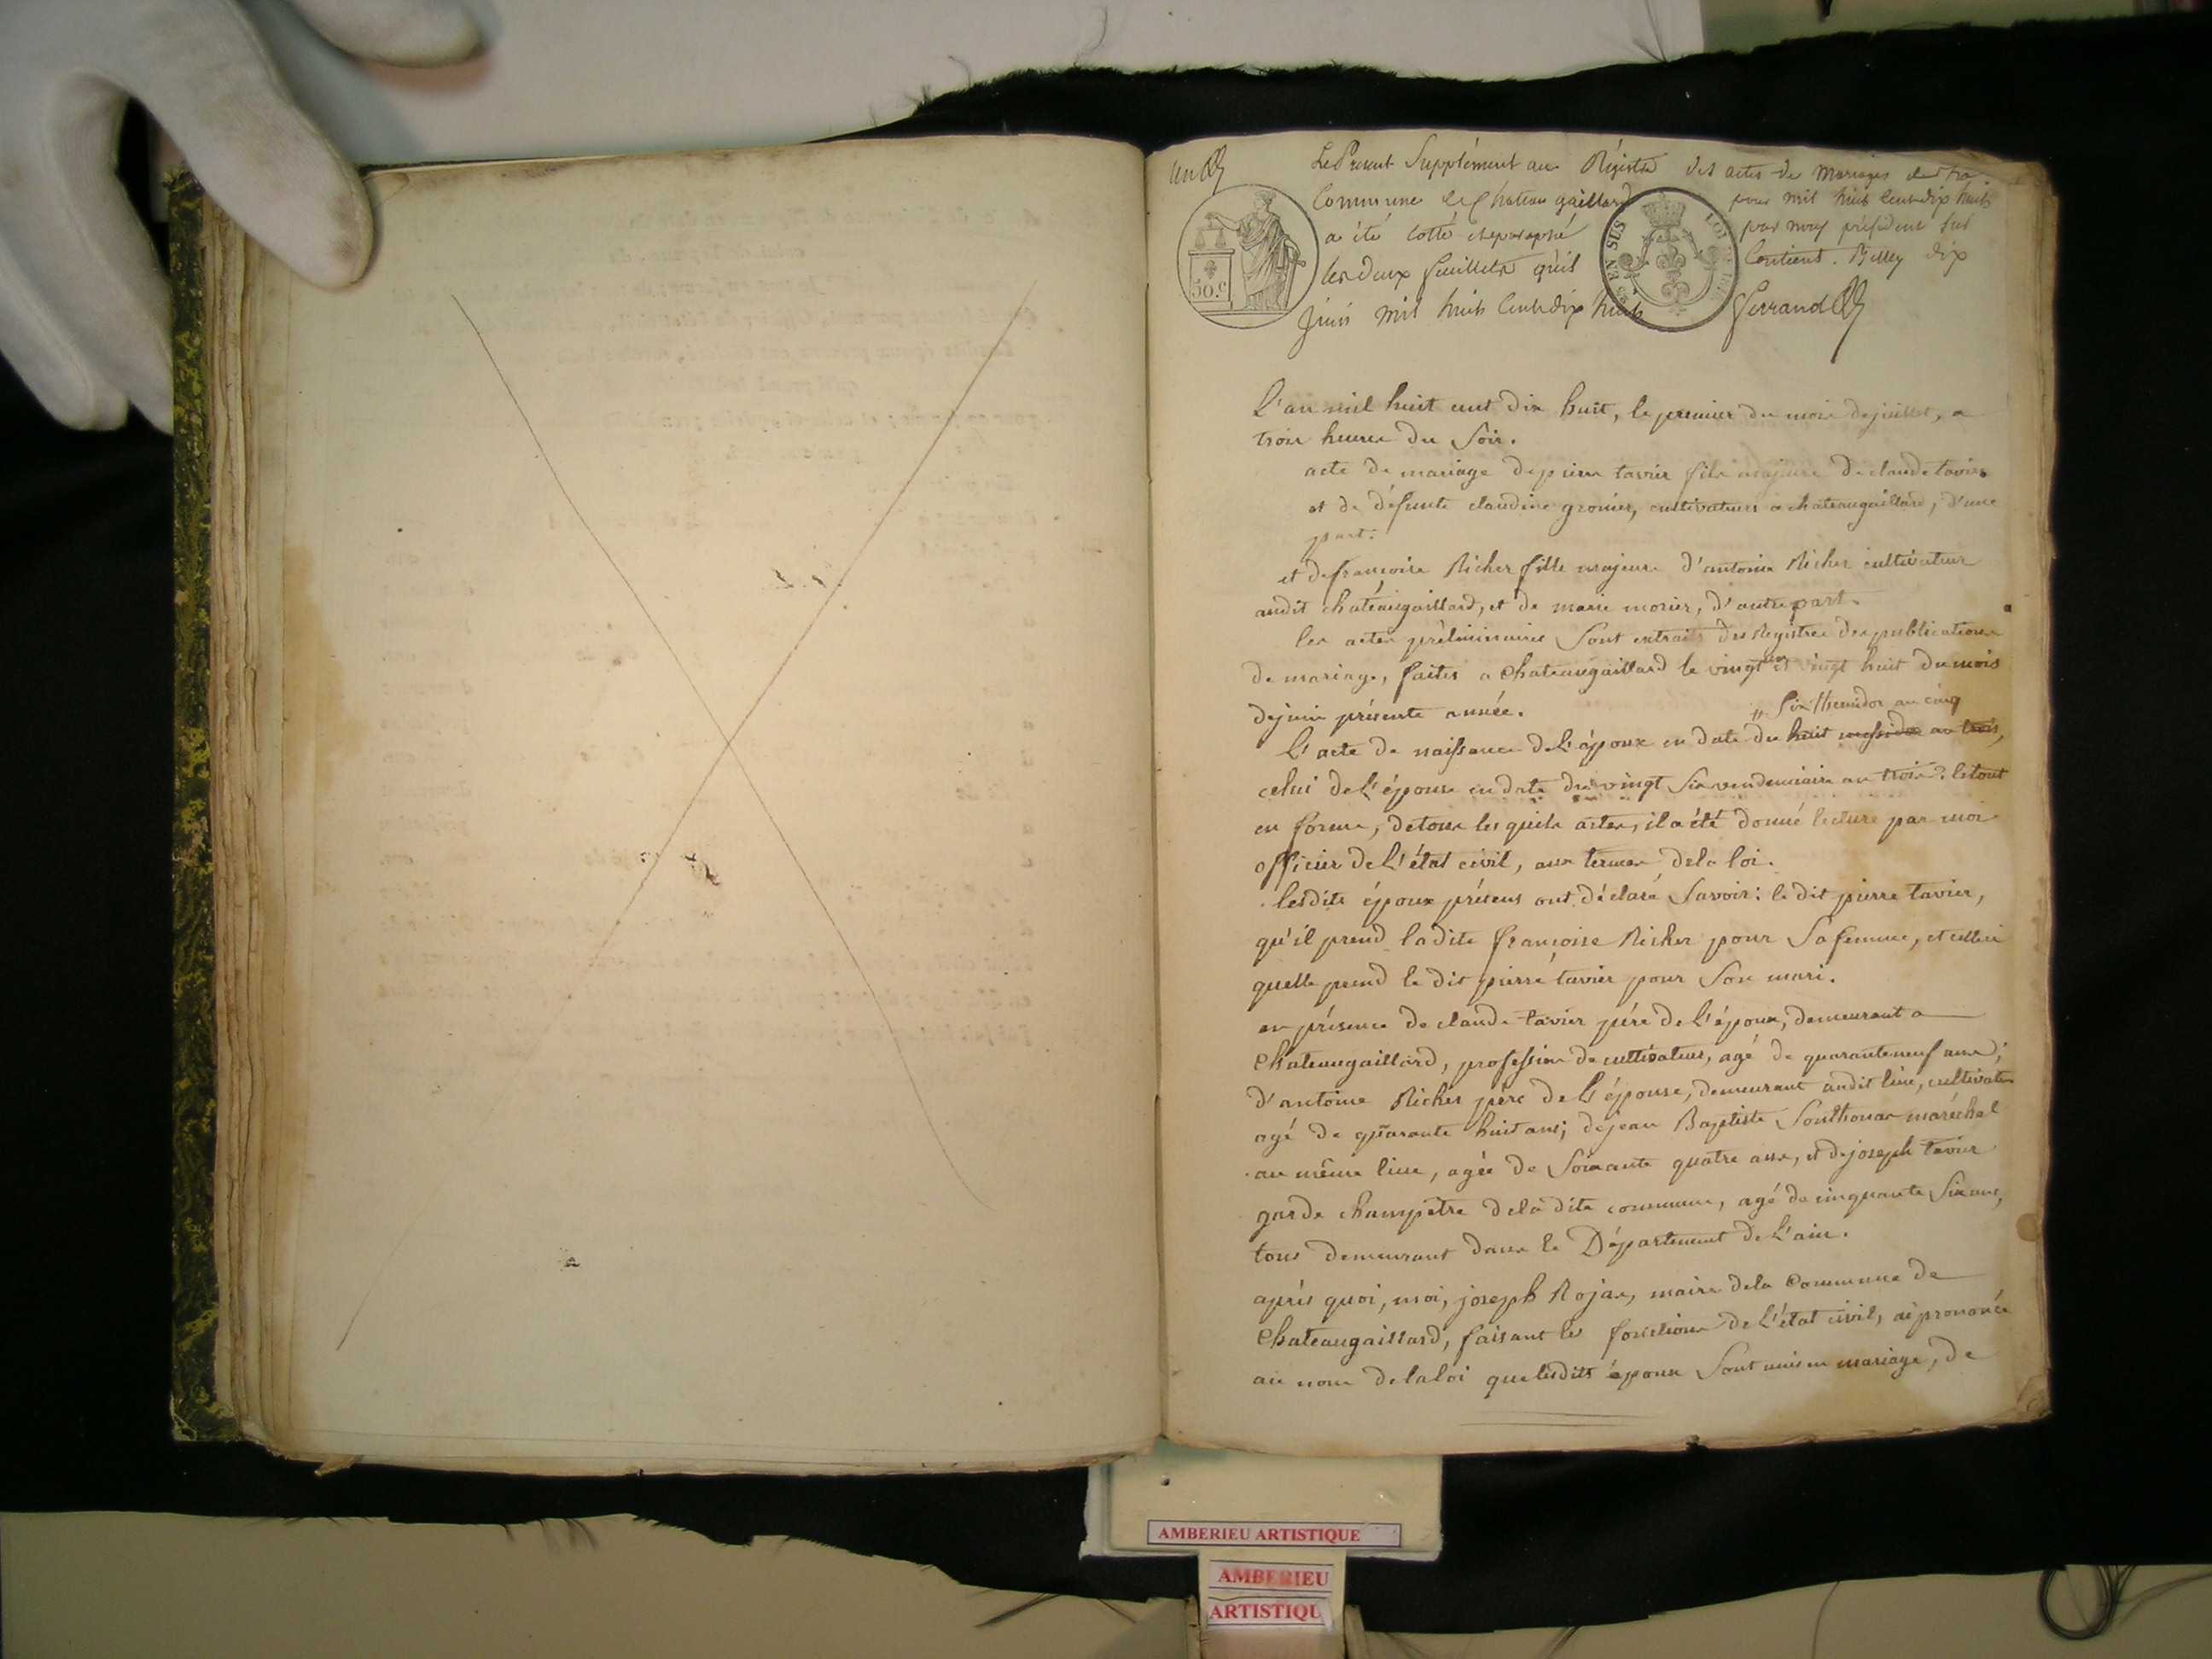 un
Le Present Supplément au Régistre des actes de Mariages de la
Commune de Chateau gaillard pour mil huit cent dix huit
a été cotté et paraphé par nous président sur
les deux feuillets qu'il Contient. Belley dix
juin mil huit cent dix huit Ferrand
50.C
EN SUS
LOI
L'an mil huit cent dix huit, le premier du mois de juillet, a
trois heures du Soir.
acte de mariage de pierre tavier fils majeur de claude tavier
et de défunte claudine gronier, cultivateurs a chateaugaillard, d'une
part:
et de françoise Richer fille majeure d'antoine Richer cultivateur
audit chateaugaillard, et de marie morier, d'autre part.
les actes préliminaires Sont extraits des Registres des publications
de mariage, faites a Chateaugaillard le vingt un et vingt huit du mois
de juin présente année.
Six thermidor an cinq
L'acte de naissance de L'époux en date du huit messidor an trois,
celui de L'épouse en date du vingt Six vendemiaire an trois. le tout
en forme, de tous les quels actes, il a été donné lecture par moi
officier de L'état civil, aux termes de la loi.
lesdits époux présens ont déclaré Savoir: le dit pierre tavier,
qu'il prend la dite françoise Richer pour Sa femme, et celle ci
quelle prend le dit pierre tavier pour Son mari.
en présence de claude tavier père de L'époux, demeurant a
Chateaugaillard, profession de cultivateur, agé de quarante neuf ans;
d'antoine Richer père de L'épouse, demeurant audit lieu, cultivateur
agé de quarante huit ans; de jean Baptiste Southonax maréchal
au même lieu, agée de Soixante quatre ans, et de joseph tavier
garde champêtre de la dite commune, agé de cinquante Six ans,
tous demeurant dans le Département de L'ain.
après quoi, moi, joseph Rojas, maire de la Commune de
Chateaugaillard, faisant les fonctions de L'état civil, ai prononcé
au nom de la loi que lesdits époux Sont unis en mariage, de
AMBERIEU ARTISTIQUE
AMBERIEU
ARTISTIQU